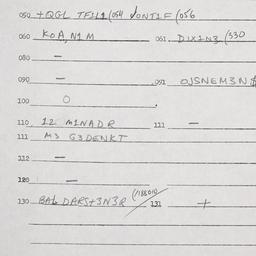 050 +QGL TFLL1 (054 VONT1F (056
060 KOA, N1M 061. D1X1N3 (330
080 —
090 — 091 OJSNEM3N $
100 O
110 12 M1NADR 111 —
111 M3 G3DENKT
112 —
120 —
130 BAL DARS+3N3R (118801) 131 +